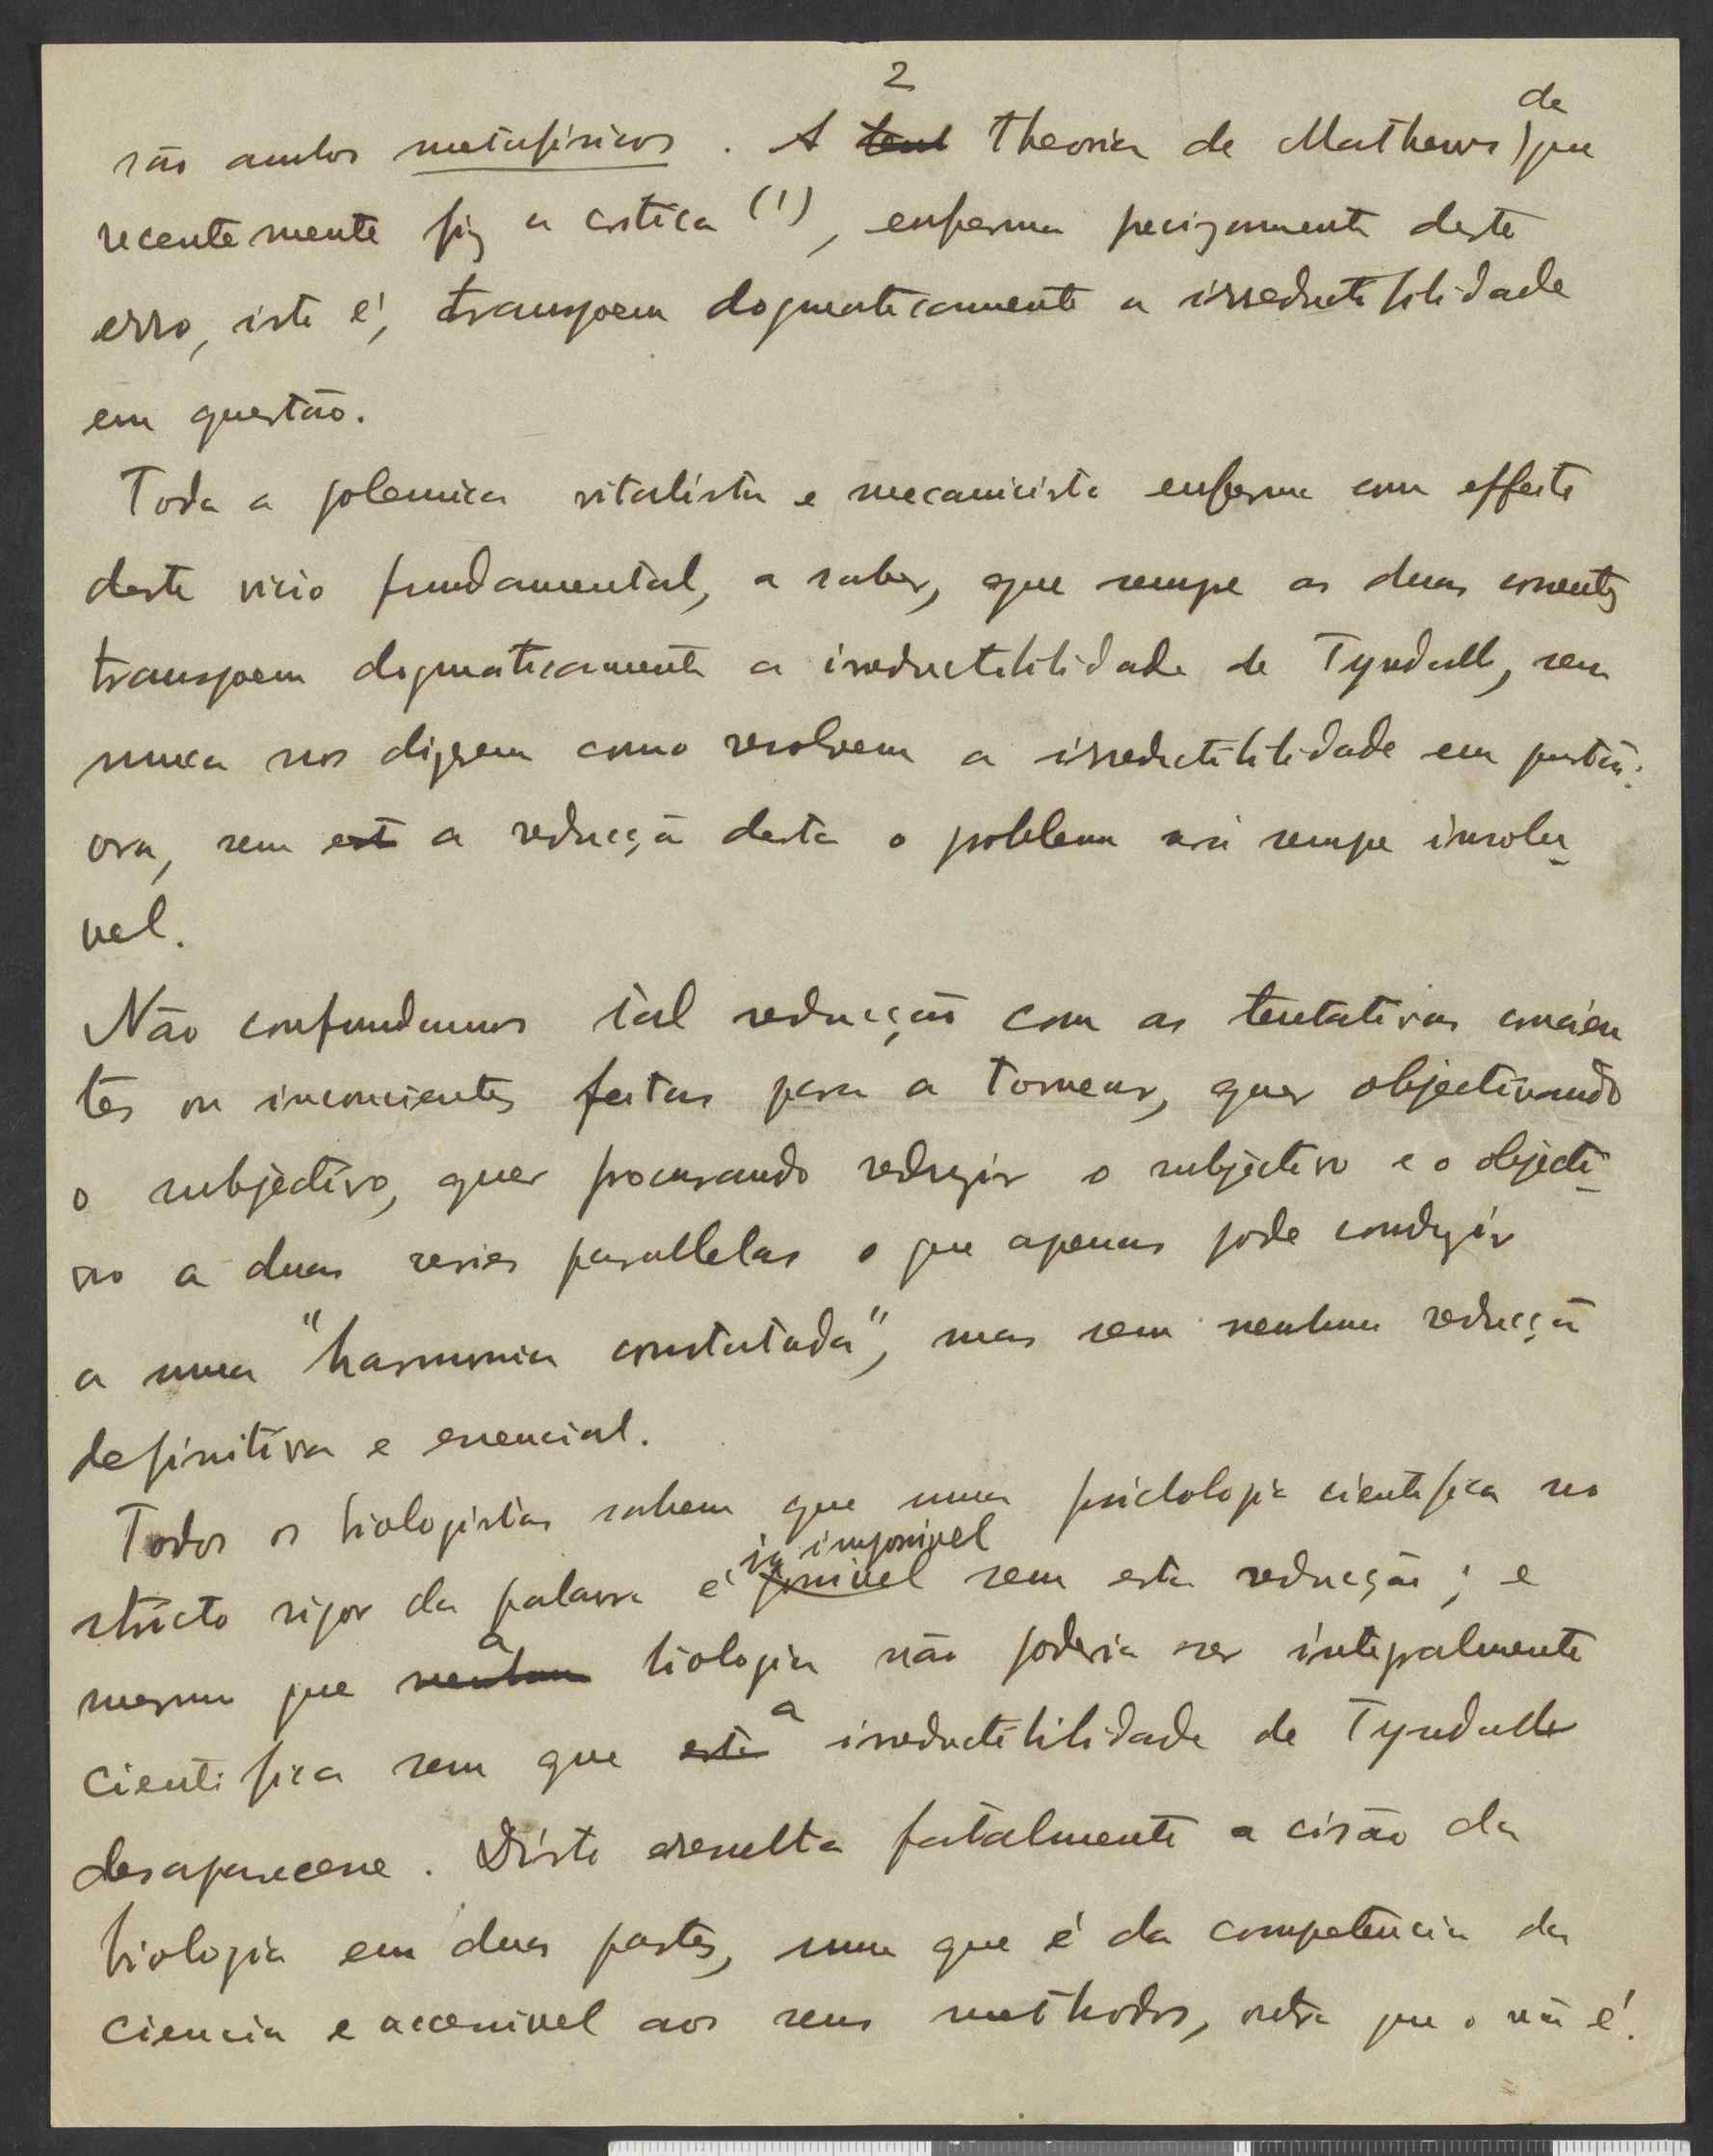 2
são ambos metafisicos. A tent theoria de Mathews, de que
recentemente fiz a critica (1), enferma precizamente deste
erro, isto é, transpoem dogmaticamente a irreductibilidade
em questão.
Toda a polemica vitalista e mecanicista enferma com effeito
deste vicio fundamental, a saber, que sempre as duas correntes
transpoem dogmaticamente a irreductibilidade de Tyndall, sem
nunca nos dizerem como resolvem a irreductibilidade em questão:
ora, sem esta a reducção desta o problema será sempre insolu-
vel.
Não confundamos tal reducção com as tentativas conscien
tes ou inconscientes feitas para a tornear, quer objectivando
o subjectivo, quer procurando reduzir o subjectivo e o objecti-
vo a duas series parallelas o que apenas pode conduzir
a uma "harmonia constatada", mas sem nenhuma reducção
definitiva e essencial.
Todos os biologistas sabem que uma psicologia cientifica no
stricto rigor da palavra é possivel impossivel sem esta reducção; e
mesmo que nenhuma a biologia não poderia ser integralmente
cientifica sem que esta a irreductibilidade de Tyndall
desaparecesse. Disto resulta fatalmente a cisão da
biologia em duas partes, uma que é da competencia da
ciencia e accessivel aos seus methodos, outra que o não é.